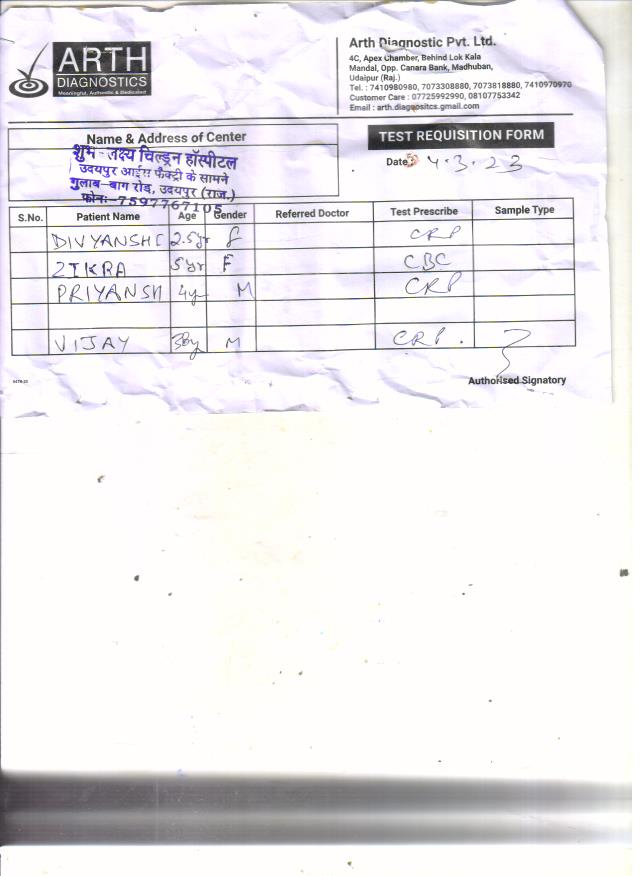 ARTH
DIAGNOSTICS
Meaningful, Authentic & Dedicated
Arth Diagnostic Pvt. Ltd.
4C, Apex Chamber, Behind Lok Kala
Mandal, Opp. Canara Bank, Madhuban,
Udaipur (Raj.)
Tel. : 7410980980, 7073308880, 7073818880, 7410970970
Customer Care : 07725992990, 08107753342
Email : arth.diagnositcs.gmail.com
Name & Address of Center
शुभ-लक्ष्य चिल्ड्रन हॉस्पीटल
उदयपुर आईस फैक्ट्री के सामने
गुलाब-बाग रोड, उदयपुर (राज.)
फोनः-7597767105
TEST REQUISITION FORM
Date 4.3.23
S.No. Patient Name Age Gender Referred Doctor Test Prescribe Sample Type
DIVYANSHI 2.5yr f CRP
ZIKRA 5yr F CBC
PRIYANSH 4y M CRP
VIJAY M CRP.
Authorised Signatory